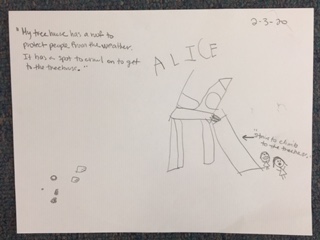 "My treehouse has a roof to
protect people from the weather.
It has a spot to crawl on to get
to the treehouse."
ALICE
2-3-20
to climb
to the treehouse.